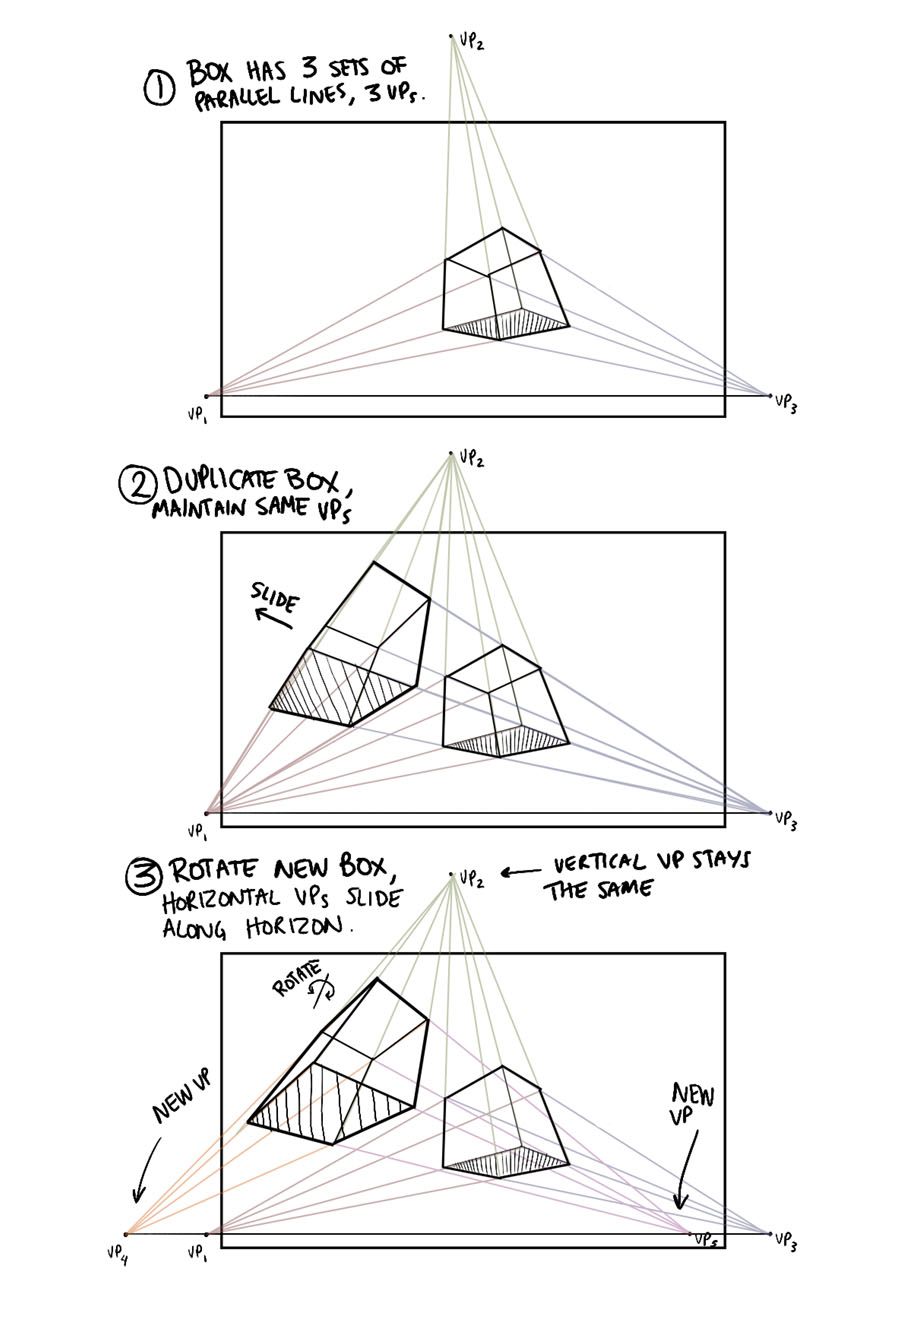 VP2
① BOX HAS 3 SETS OF
PARALLEL LINES, 3 VPs.
VP1
VP3
VP2
② DUPLICATE BOX,
MAINTAIN SAME VPs
SLIDE
VP1
VP3
③ ROTATE NEW BOX,
HORIZONTAL VPs SLIDE
ALONG HORIZON.
VP2
VERTICAL VP STAYS
THE SAME
ROTATE
NEW VP
NEW
VP
VP4
VP1
VP5
VP3